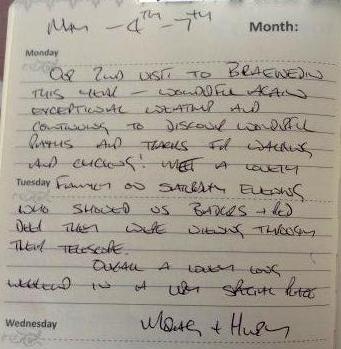 May - 4TH - 7TH Month:
Monday
OUR 2ND VISIT TO
THIS YEAR - WONDERFUL AGAIN
EXCEPTIONAL WEATHER AND
CONTINUING TO DISCOVER WONDERFUL
PATHS AND TRACKS FOR WALKING
AND CYCLING! MEET A LOVELY
Tuesday FAMILY ON SATURDAY EVENING
WHO SHOWED US BADGERS + RED
DEER THEY WERE VIEWING THROUGH
THEIR TELESCOPE.
OVERALL A LOVELY LONG
WEEKEND IN A VERY SPECIAL PLACE
Wednesday